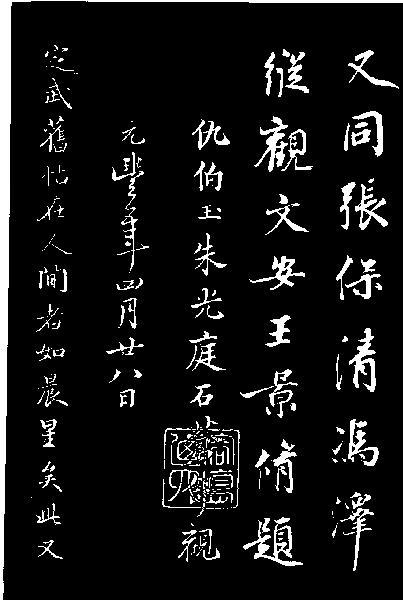 又同張保清馮澤
縱觀文安王景脩題
仇伯玉朱光庭石觀
元豐五年四月廿八日
定武舊帖在人間者如晨星矣此又